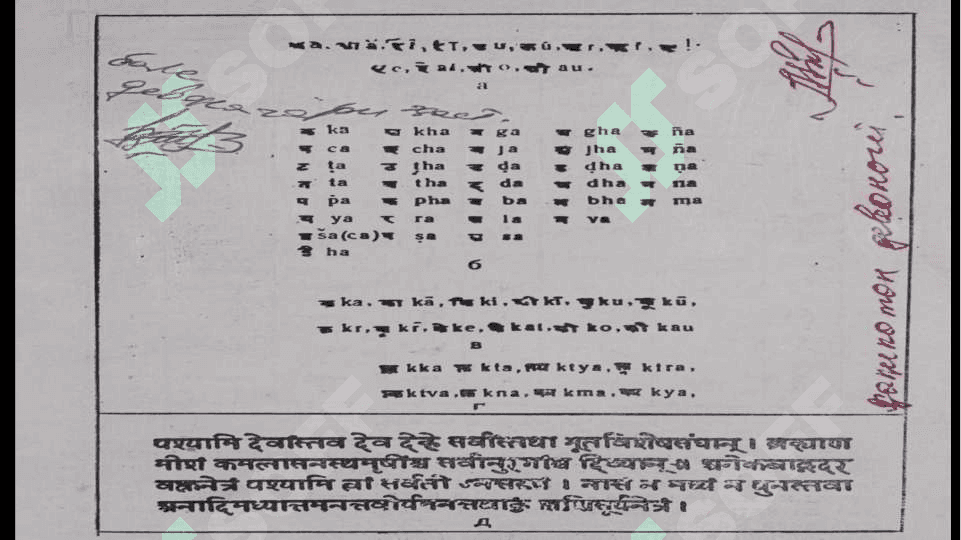 अ a. आ ā. इ i, ई ī, उ u, ऊ ū, ऋ r, ॠ r̄, ऌ l.
ए e, ऐ ai, ओ o, औ au.
а
क ka ख kha ग ga घ gha ङ ña
च ca छ cha ज ja झ jha ञ ña
ट ṭa ठ ṭha ड ḍa ढ ḍha ण ṇa
त ta थ tha द da ध dha न na
प pa फ pha ब ba भ bha म ma
य ya र ra ल la व va
श ša(ca) ष ṣa स sa
ह ha
б
क ka, का kā, कि ki, की kī, कु ku, कू kū,
कृ kr, कॄ kr̄, के ke, कै kai, को ko, कौ kau
в
क्क kka क्त kta, क्त्य ktya, ktra,
क्त्व ktva, क्न kna, क्म kma, क्य kya,
г
पश्यामि देवांस्तव देव देहे सर्वांस्तथा भूतविशेषसंघान् । ब्रह्माण
मीशं कमलासनस्थमृषींश्च सर्वानुरगांश्च दिव्यान् ॥ अनेकबाहूदर
वक्त्रनेत्रं पश्यामि त्वां सर्वतो ऽनन्तरूपं । नान्तं न मध्यं न पुनस्तवा
अनादिमध्यान्तमनन्तवीर्यमनन्तबाहुं शशिसूर्यनेत्रं ।
д
SOFF